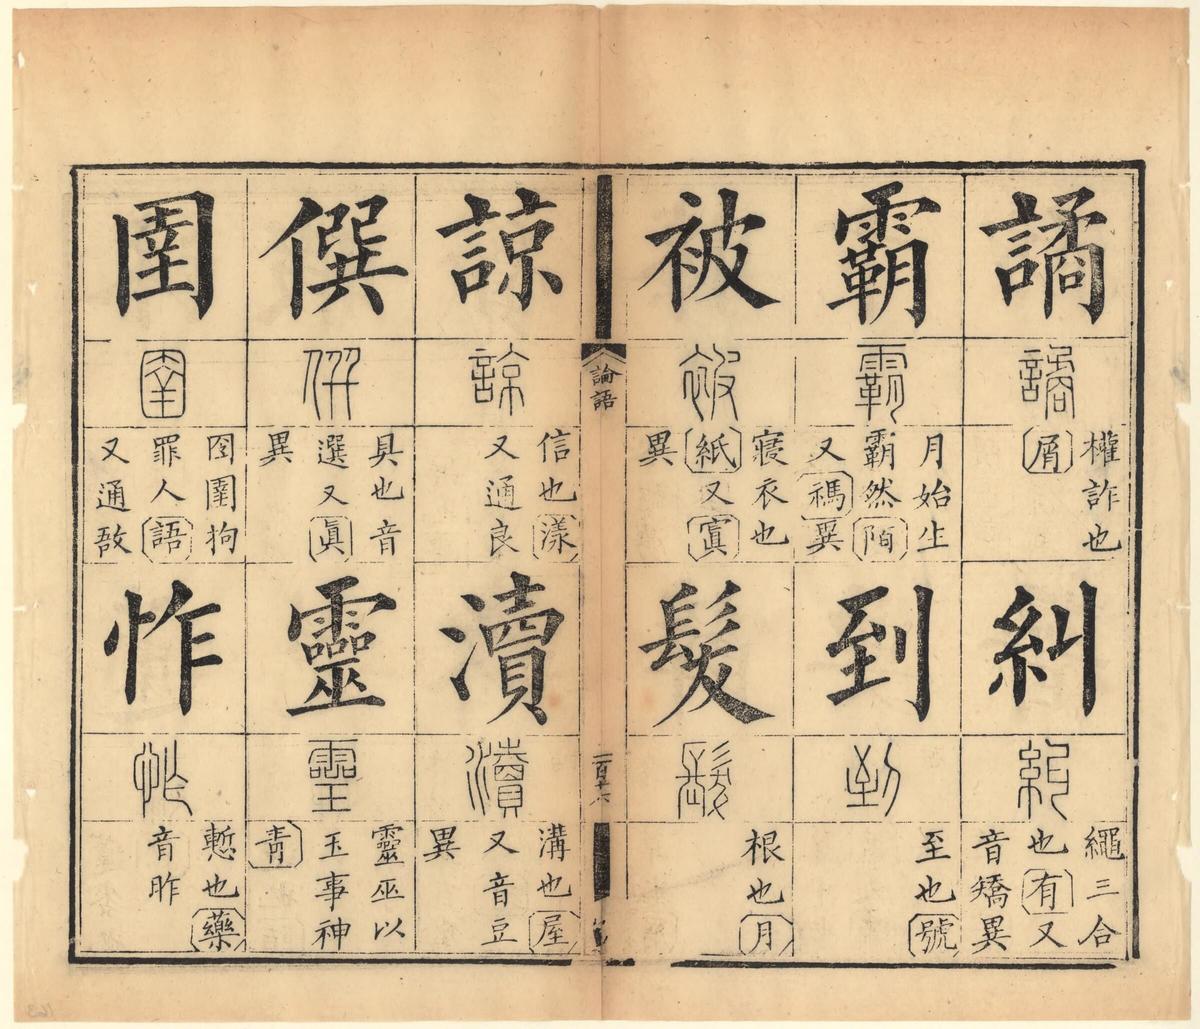 譎
權詐也
屑
糾
繩三合
也有又
音矯異
霸
月始生
霸然陌
又禡異
到
至也號
被
寢衣也
紙又寘
異
髮
根也月
論語
諒
信也漾
又通良
瀆
溝也屋
又音豆
異
僎
具也音
選又眞
異
靈
靈巫以
玉事神
靑
圉
囹圉拘
罪人語
又通敔
怍
慙也藥
音昨